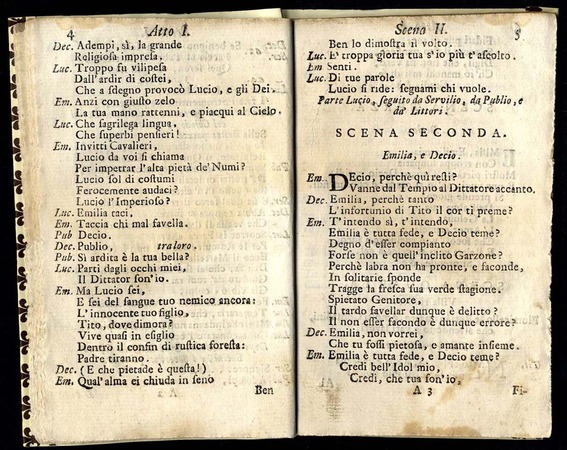 4 Atto I.
Dec. Adempi, sì, la grande
Religiosa impresa,
Luc. Troppo fu vilipesa
Dall'ardir di costei,
Che a sdegno provocò Lucio, e gli Dei.
Em. Anzi con giusto zelo
La tua mano rattenni, e piacqui al Cielo.
Luc. Che sagrilega lingua,
Che superbi pensieri!
Em. Invitti Cavalieri,
Lucio da voi si chiama
Per impetrar l'alta pietà de' Numi?
Lucio sol di costumi
Ferocemente audaci?
Lucio l'Imperioso?
Luc. Emilia taci,
Em. Taccia chi mal favella.
Pub Decio.
Dec. Publio, tra loro.
Pub. Sì ardita è la tua bella?
Luc. Parti dagli occhi miei,
Il Dittator son'io.
Em. Ma Lucio sei,
E sei del sangue tuo nemico ancora:
L'innocente tuo figlio,
Tito, dove dimora?
Vive quasi in esiglio
Dentro il confin di rustica foresta:
Padre tiranno.
Dec. (E che pietade è questa!)
Em. Qual'alma ei chiuda in seno
A 2 Ben
Scena II. 5
Ben lo dimostra il volto.
Luc. E' troppa gloria tua s'io più t'ascolto.
Em Senti.
Luc. Di tue parole
Lucio si ride: seguami chi vuole.
Parte Lucio, seguito da Servilio, da Publio, e
da' Littori.
SCENA SECONDA.
Emilia, e Decio.
Em. Decio, perchè quì resti?
Vanne dal Tempio al Dittatore accanto.
Dec. Emilia, perchè tanto
L'infortunio di Tito il cor ti preme?
Em. T'intendo sì, t'intendo,
Emilia è tutta fede, e Decio teme?
Degno d'esser compianto
Forse non è quell'inclito Garzone?
Perchè labra non ha pronte, e faconde,
In solitarie sponde
Tragge la fresca sua verde stagione.
Spietato Genitore,
Il tardo favellar dunque è delitto?
Il non esser facondo è dunque errore?
Dec. Emilia, non vorrei,
Che tu fossi pietosa, e amante insieme.
Em. Emilia è tutta fede, e Decio teme?
Credi bell'Idol mio,
Credi, che tua son'io.
A 3 Fi-